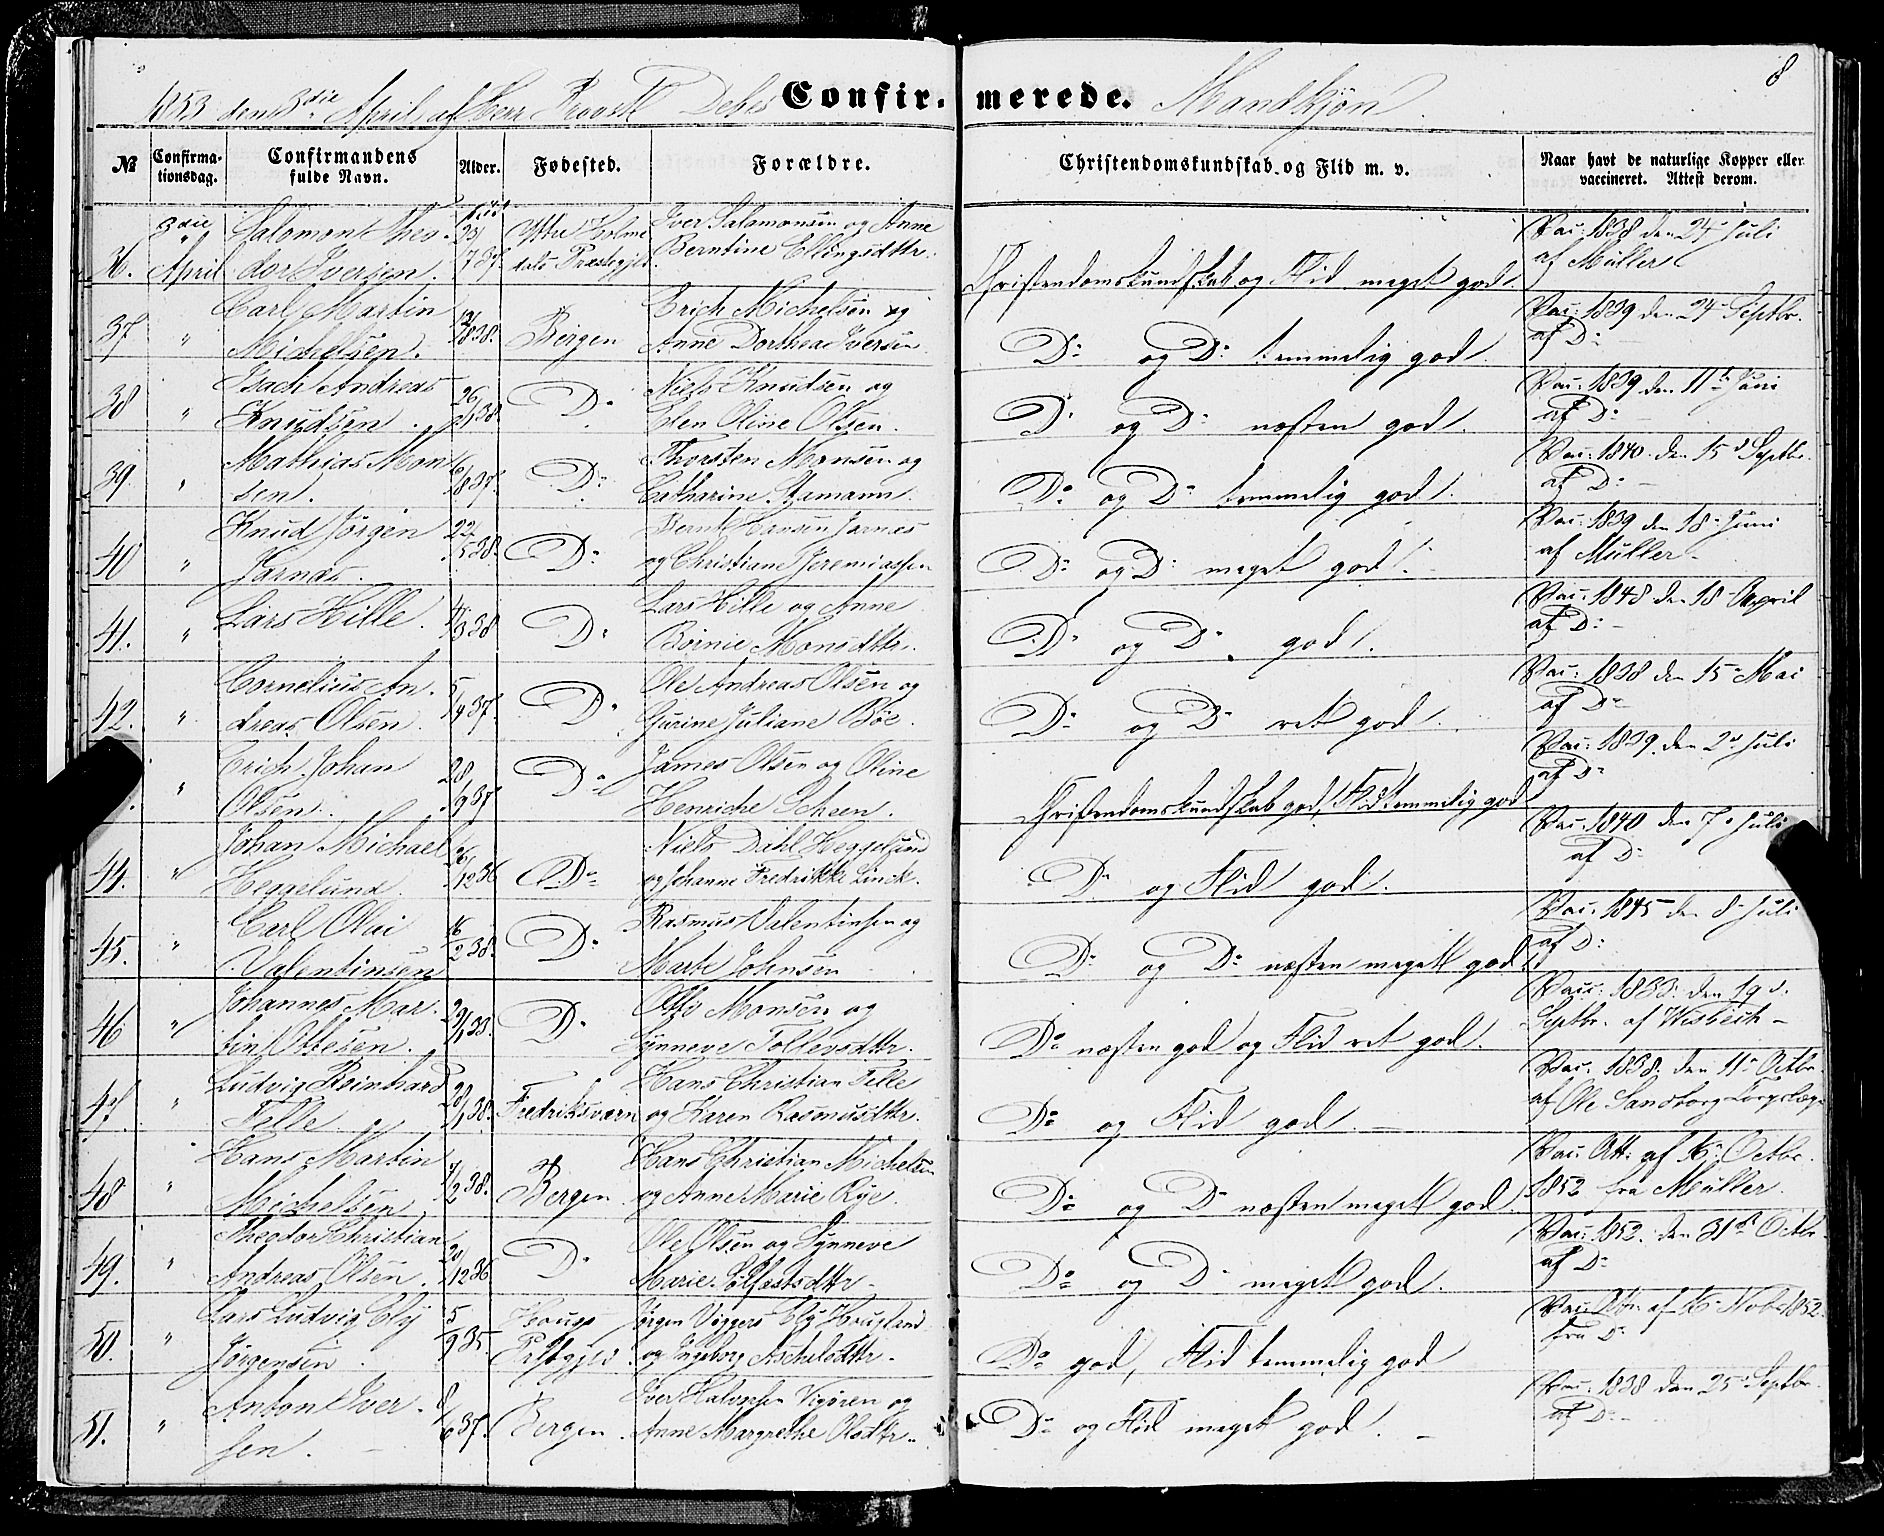 8
1853 den 3die April af Herr Provst Debes Confir- merede. Mandkjøn
№ Confirma-tionsdag. Confirmandens fulde Navn. Alder. Fødested. Forældre. Christendomskundskab og Flid m. v. Naar havt de naturlige Kopper eller vaccineret. Attest derom.
3die Salomon Theo- Yttre Holme Iver Salamonsen og Anne Vac: 1838 den 24 Juli
36. April dor Iversen. dals Præstegjeld Berntine Ellingsdttr. Christendomskundskab og Flid meget god. af Müller
Carl Martin Erich Michelsen og Vac: 1839 den 24 Septbr.
37 " Michelsen. 12/8 38. Bergen Anne Dorthea Iversen D: og D: temmelig god. af D:
Isach Andreas Niels Knudsen og Vac: 1839 den 11te Juni
38 " Knudsen. 26/1 38. D: Elen Oline Olsen. D: og D: næsten god. af D:
Mathias Mon Thorsten Monsen og Vac: 1840 den 15d Septbr.
39. " sen. 6/8 37. D: Catharine Stamann. D: og D: temmelig god. af D:
Knud Jørgen Bernt Hansen Jarnes Vac: 1839 den 18 Juni
40 " Jarnæs. 22/5 38. D: og Christiane Jeremiassen D: og D: meget god. af Müller
Lars Hille. Lars Hille og Anne Vac: 1848 den 18 April
41. " /3 38 D: Børnie Monsdttr. D: og D: god. af D:
Cornelius An- Ole Andreas Olsen og Vac: 1838 den 15 Mai
42. " dreas Olsen 5/9 37. D: Gurine Juliane Bøe. D: og D: ret god. af D:
Erich Johan James Olsen og Oline Vac: 1839. den 2d Juli
" Olsen. 28/9 37 D: Henriche Scheen. Christendomskundskab god, Flid temmelig god af D:
Johan Michael Niels Dahl Heggelund Vac: 1840 den 7 Juli
44. " Heggelund. 26/12 36 D: og Johanne Fredrikke Linck. D: og Flid god. af D:
Carl Olai Rasmus Valentinsen og Vac: 1845 den 8 Juli
45. " Valentinsen 16/2 38. D: Marte Johnsen D: og D: næsten meget god. af D:
Johannes Mar- Otto Monsen og Vacc: 1833. den 19d.
46 " tin Ottesen. 29/1 33. D: Synneve Tollevsdttr. D: næsten god og Flid ret god. Septbr. af Wisbech
Ludvig Reinhard Hans Christian Telle Vac. 1838. den 11 Octbr.
47 " Telle. 20/1 38. Fredriksværn og Karen Rasmusdttr. D: og Flid god. af Ole Sandborg
Hans Martin Hans Christian Michelsen Vac: Att: af Octbr.
48 " Michelsen /2 38. Bergen. og Anne Marie Rye. D: og D: næsten meget god. 1852 fra Müller.
Theodor Christian Ole Olsen og Synneve Vac: 1852. den 31te Octbr.
49. " Andreas Olsen. 20/12 36 D: Marie Solfastsdttr. D: og D: meget god. af D:
Lars Ludvig Elg 5 Houg Jørgen Viggers Elg Hougland Vac: af Novbr 1852.
50. " Jørgensen 9 35. Prstgjld. og Ingeborg Aschelsdttr. D: god, Flid temmelig god fra D:
Anton Iver- Iver Halvorsen Vigøren og Vac: 1838 den 25d Septbr.
51. " sen. 8/6 37. Bergen. Anne Margrethe Olsdttr. D: og Flid meget god. af D: